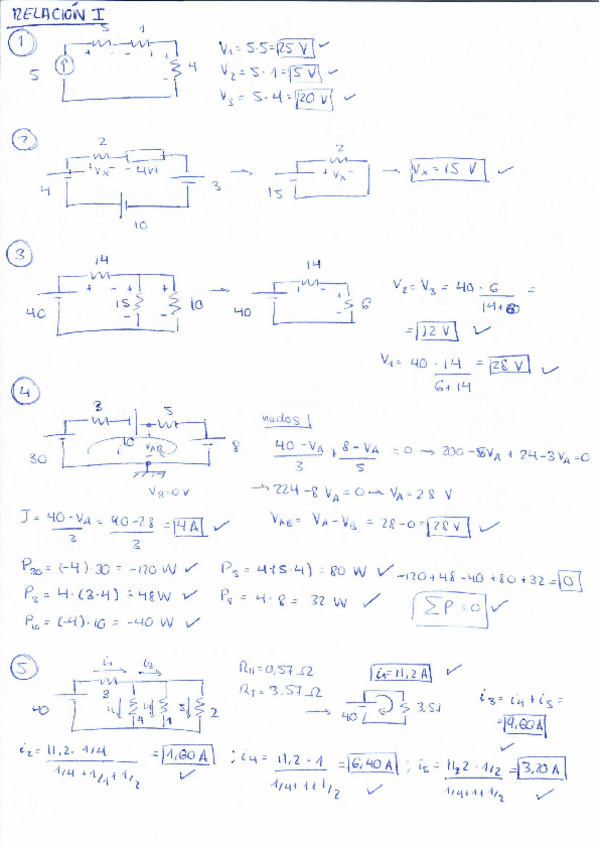 RELACIÓN I
1
5 1
5
4
V₁ = 5·5 = 25 V ✓
V₂ = 5·1 = 5 V ✓
V₃ = 5·4 = 20 V ✓
2
2
+ Vx - - 4Vx
4 3
10
→
2
+ Vx -
15
→ Vx = 15 V ✓
3
14
15 10
40
→
14
40 6
V₂ = V₃ = 40 · 6 / 14+6 =
= 12 V ✓
V₁ = 40 · 14 / 6+14 = 28 V ✓
4
3 5
10 VAB
30 8
VB = 0V
nodos
40 - VA / 3 + 8 - VA / 5 = 0 → 200 - 5VA + 24 - 3VA = 0
→ 224 - 8 VA = 0 → VA = 28 V
I = 40 - VA / 3 = 40 - 28 / 3 = 4 A ✓
VAB = VA - VB = 28 - 0 = 28 V ✓
P₃₀ = (-4)·30 = -120 W ✓ P₅ = 4·(5·4) = 80 W ✓ -120+48-40+80+32 = 0
P₃ = 4·(3·4) = 48 W ✓ P₈ = 4·8 = 32 W ✓ ΣP = 0 ✓
P₁₀ = (-4)·10 = -40 W ✓
5
i₁ i₂
3
40
4 1 2
R11 = 0,57 Ω
RT = 3.57 Ω
→
i₁ = 11,2 A ✓
40 3,57
i₃ = i₄ + i₅ =
= 9,60 A ✓
i₂ = 11,2 · 1/4 / 1/4 + 1/1 + 1/2 = 1,60 A ✓ ; i₄ = 11,2 · 1 / 1/4 + 1 + 1/2 = 6,40 A ✓ ; i₅ = 11,2 · 1/2 / 1/4 + 1 + 1/2 = 3,20 A ✓